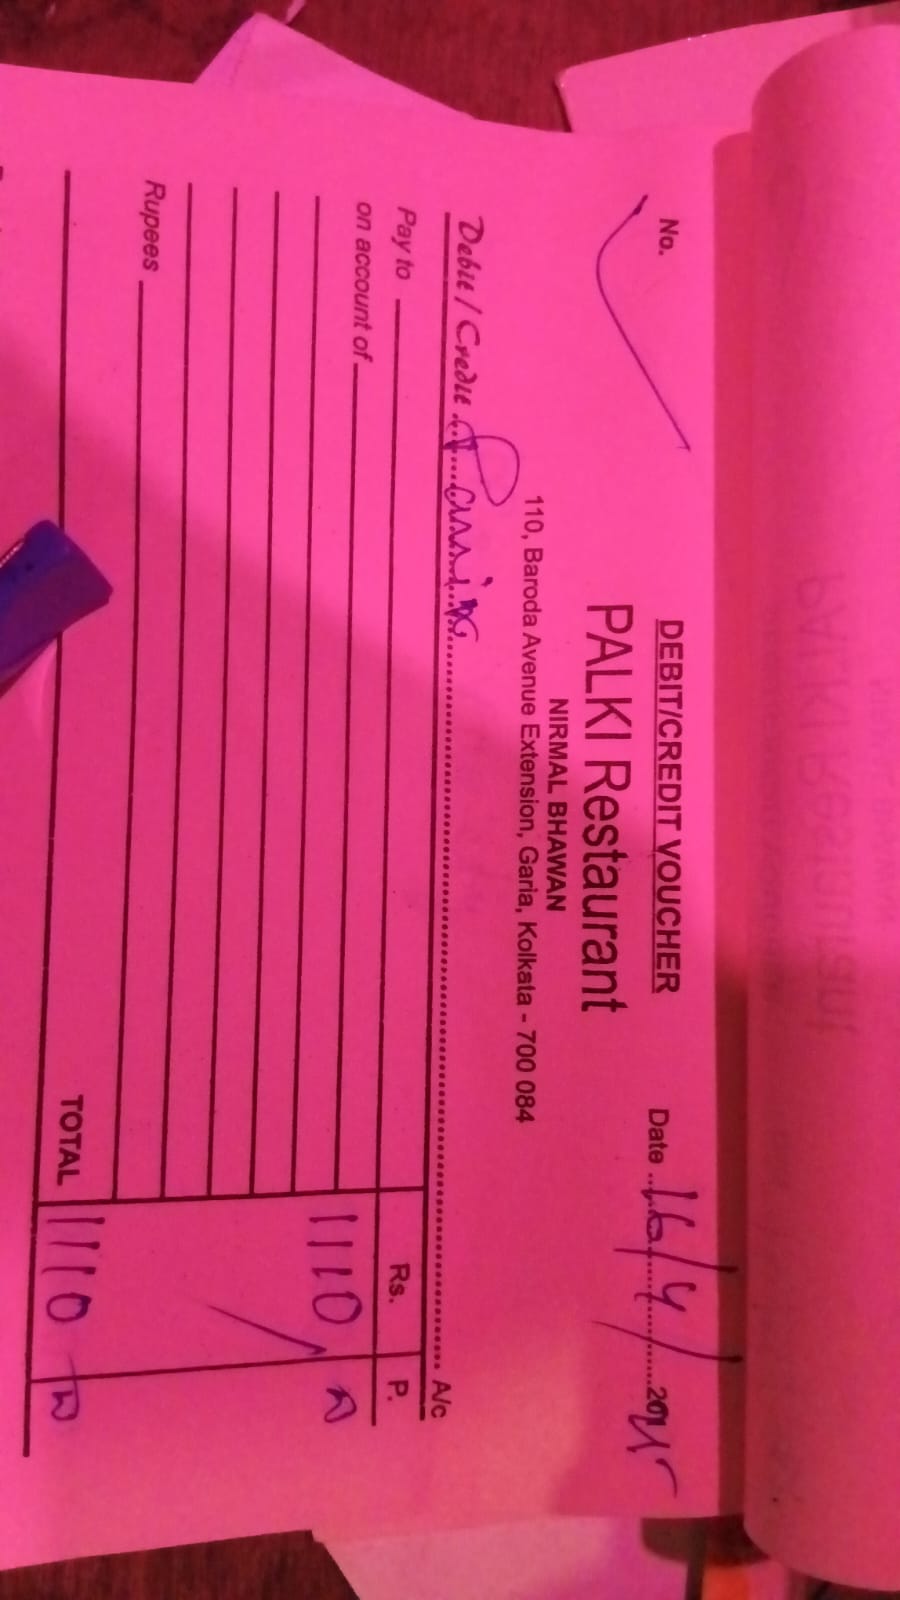 DEBIT/CREDIT VOUCHER
No.
Date 16/4/2025
PALKI Restaurant
NIRMAL BHAWAN
110, Baroda Avenue Extension, Garia, Kolkata - 700 084
Debit / Credit A/c
Pay to
Rs. P.
on account of
1110
Rupees
TOTAL 1110